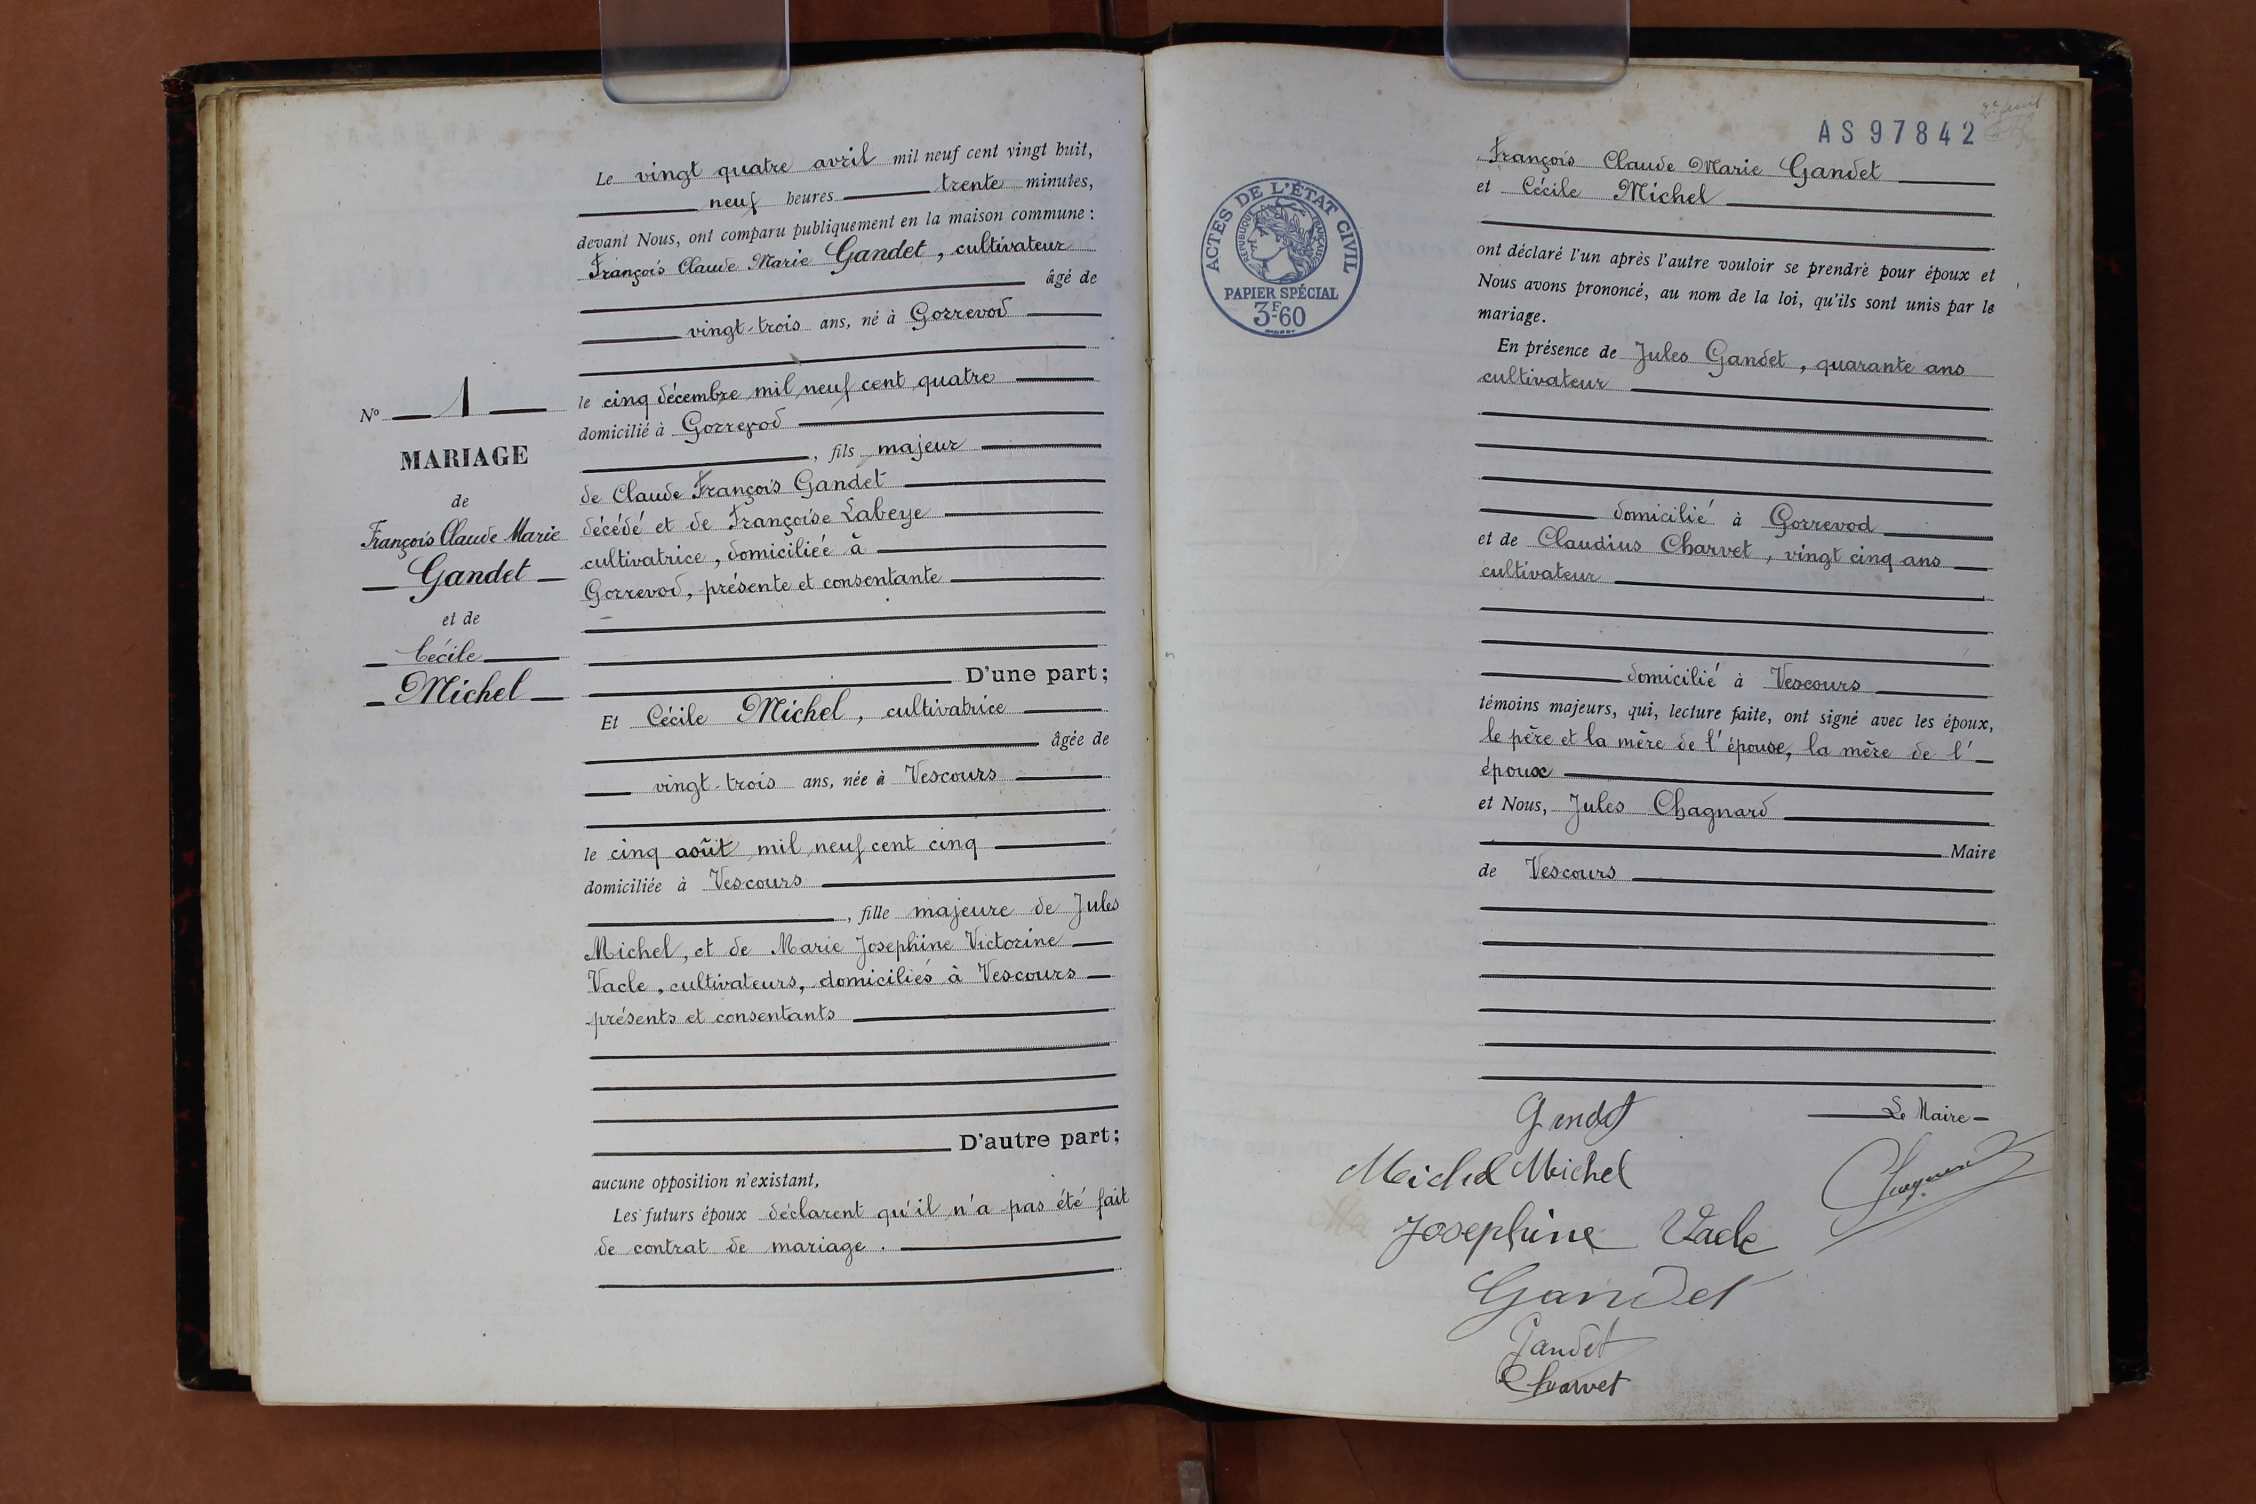 Le vingt quatre avril mil neuf cent vingt huit,
neuf heures trente minutes,
devant Nous, ont comparu publiquement en la maison commune :
François Claude Marie Gandet, cultivateur
âgé de
vingt-trois ans, né à Gorrevod
le cinq décembre mil neuf cent quatre
domicilié à Gorrevod
, fils majeur
de Claude François Gandet
décédé et de Françoise Labeye
cultivatrice, domiciliée à
Gorrevod, présente et consentante
D'une part ;
Et Cécile Michel, cultivatrice
âgée de
vingt-trois ans, née à Vescours
le cinq août mil neuf cent cinq
domiciliée à Vescours
, fille majeure de Jules
Michel, et de Marie Josephine Victorine
Vacle, cultivateurs, domiciliés à Vescours
présents et consentants
D'autre part ;
aucune opposition n'existant,
Les futurs époux déclarent qu'il n'a pas été fait
de contrat de mariage.
N° 1
MARIAGE
de
François Claude Marie
Gandet
et de
Cécile
Michel
AS97842
ACTES DE L'ÉTAT CIVIL
RÉPUBLIQUE FRANÇAISE
PAPIER SPÉCIAL
3F60
François Claude Marie Gandet
et Cécile Michel
ont déclaré l'un après l'autre vouloir se prendre pour époux et
Nous avons prononcé, au nom de la loi, qu'ils sont unis par le
mariage.
En présence de Jules Gandet, quarante ans
cultivateur
domicilié à Gorrevod
et de Claudius Charvet, vingt cinq ans
cultivateur
domicilié à Vescours
témoins majeurs, qui, lecture faite, ont signé avec les époux,
le père et la mère de l'épouse, la mère de l'
époux
et Nous, Jules Chagnard
Maire
de Vescours
Le Maire
Gandet
Michel Michel
Chagnard
Josephine Vacle
Gandet
Gandet
Charvet